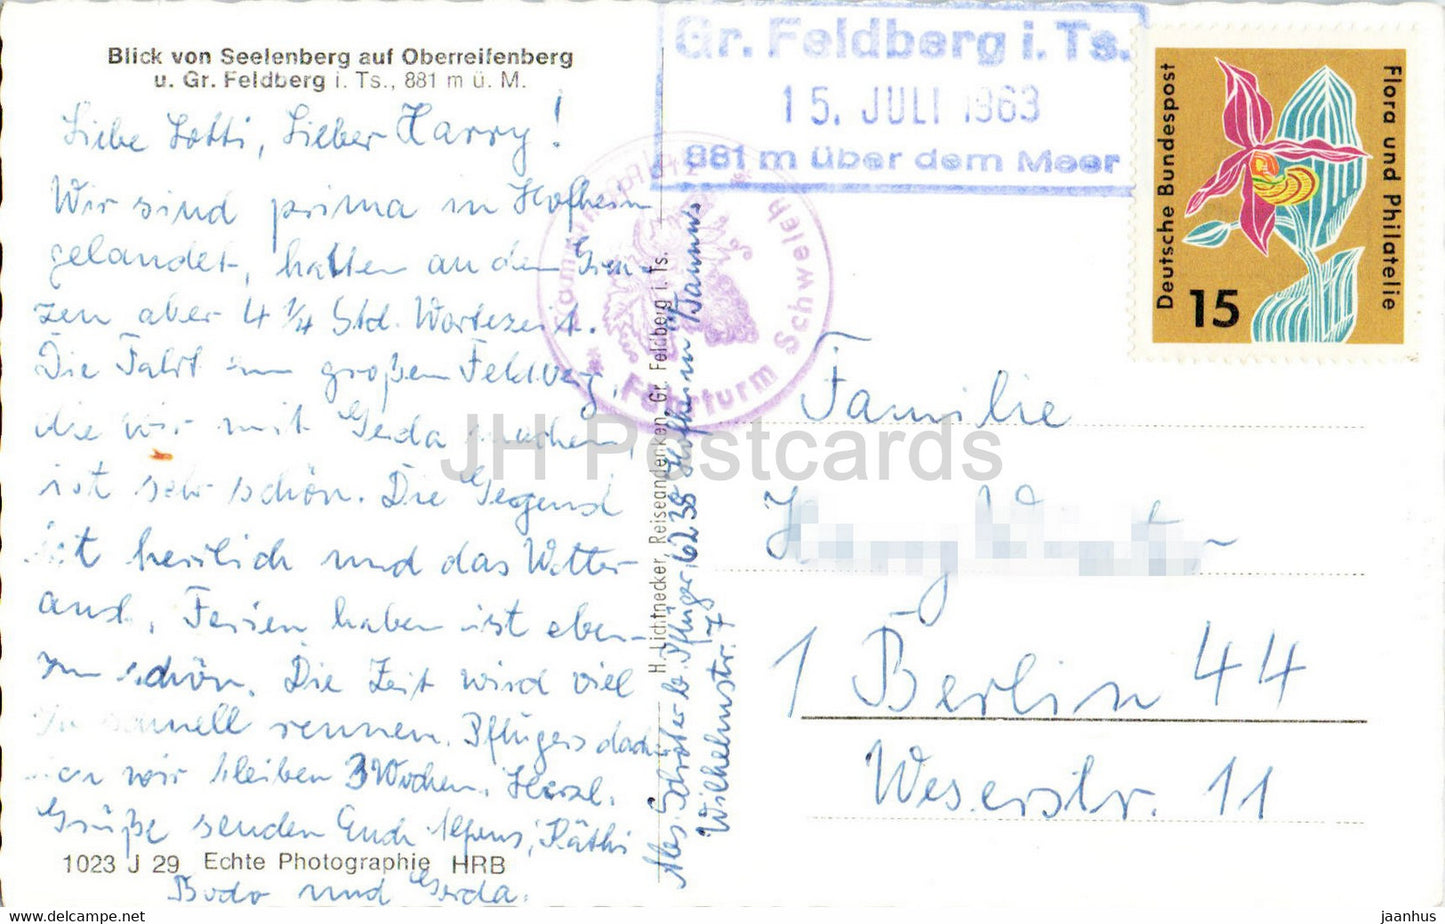 Blick von Seelenberg auf Oberreifenberg
u. Gr. Feldberg i. Ts., 881 m ü. M.
Liebe Lotti, Lieber Harry!
Wir sind prima in Hofheim
gelandet, hatten an den Gren-
zen aber 4 1/4 Std. Wartezeit.
Die Fahrt zum großen Feldberg,
die wir mit Gerda machen,
ist sehr schön. Die Gegend
ist herrlich und das Wetter
auch. Ferien haben ist eben
zu schön. Die Zeit wird viel
zu schnell rennen. Pflügers
wir bleiben 3 Wochen. Herzl.
Grüße senden Euch Alfons, Käthi
Bodo und Gerda.
1023 J 29 Echte Photographie HRB
Gr. Feldberg i. Ts.
15. JULI 1963
881 m über dem Meer
Fährturm Schweich
H. Lichtnecker, Reiseandenken, Gr. Feldberg i. Ts.
Abs. b. Pflüger, 6238 Hofheim/Taunus
Wilhelmstr. 7
Deutsche Bundespost
Flora und Philatelie
15
Familie
1 Berlin 44
Weserstr. 11
JH Postcards
jaanhus